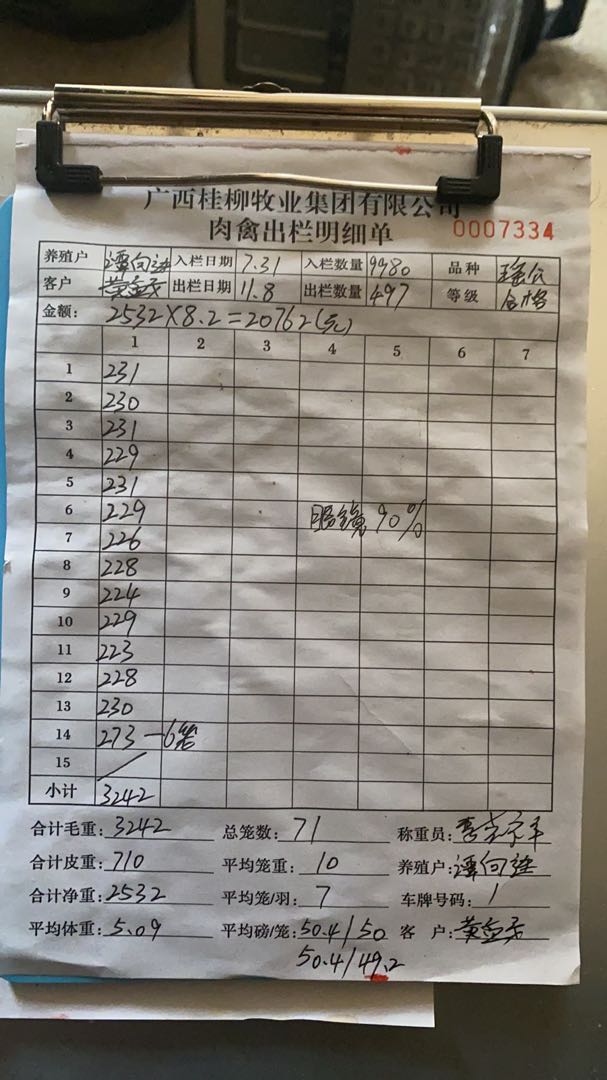 广西桂柳牧业集团有限公司
肉禽出栏明细单 0007334
养殖户 入栏日期 7.31 入栏数量 9980 品种 瑶公
客户 出栏日期 11.8 出栏数量 497 等级 合格
金额: 2532×8.2=20762(元)
1 2 3 4 5 6 7
1 231
2 230
3 231
4 229
5 231
6 229 90%
7 226
8 228
9 224
10 229
11 223
12 228
13 230
14 273 -6笼
15 /
小计 3242
合计毛重: 3242 总笼数: 71 称重员:
合计皮重: 710 平均笼重: 10 养殖户:
合计净重: 2532 平均笼/羽: 7 车牌号码: 1
平均体重: 5.09 平均磅/笼: 50.4/50 客户:
50.4/49.2